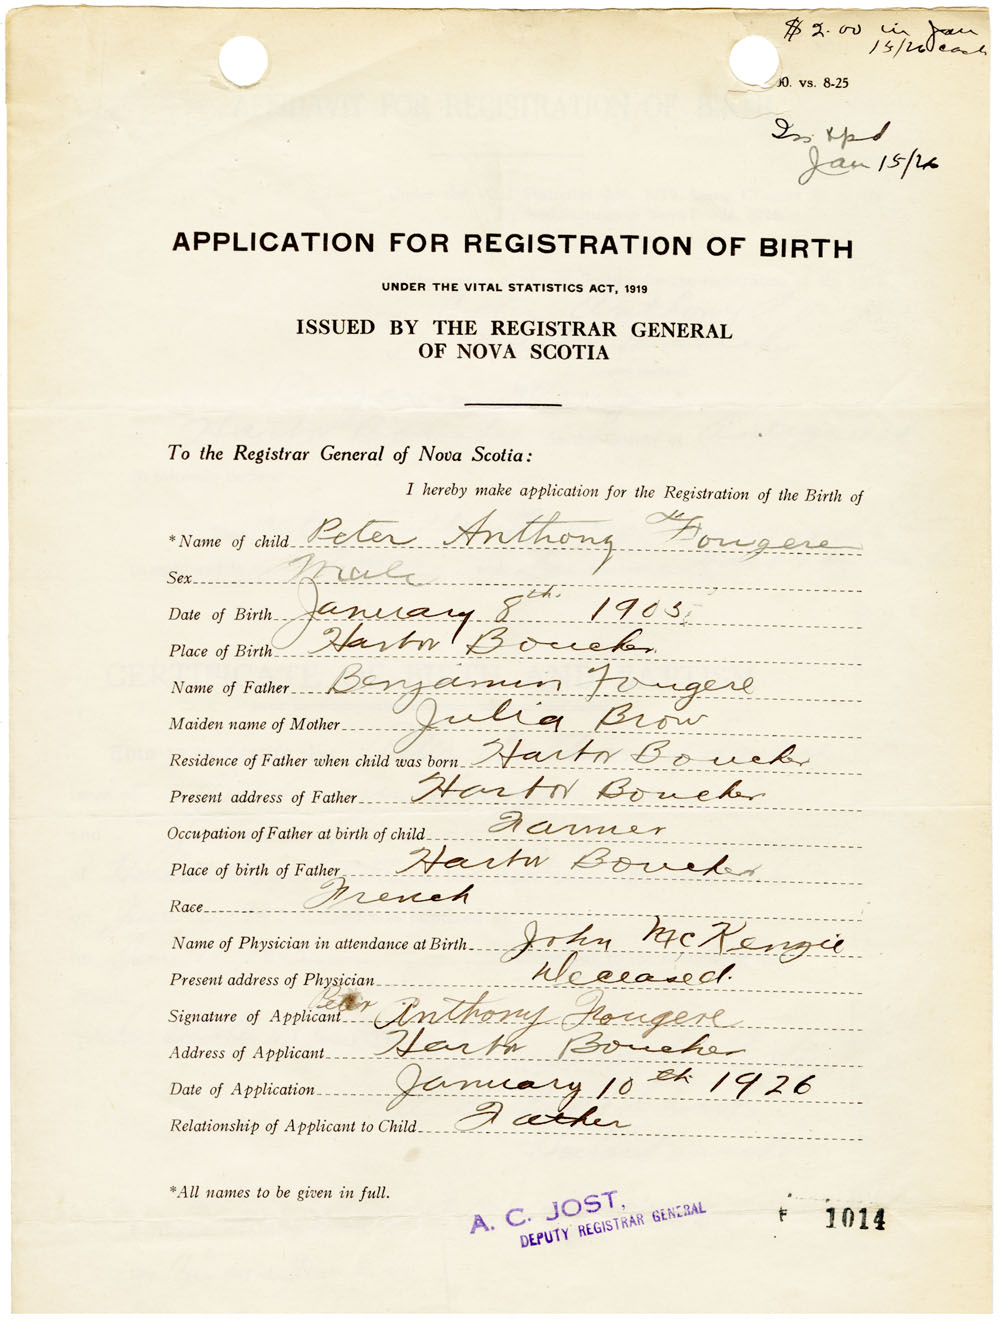 $2.00 in Jan
15/26 cash
00. vs. 8-25
Jan 15/26
APPLICATION FOR REGISTRATION OF BIRTH
UNDER THE VITAL STATISTICS ACT, 1919
ISSUED BY THE REGISTRAR GENERAL
OF NOVA SCOTIA
To the Registrar General of Nova Scotia:
I hereby make application for the Registration of the Birth of
*Name of child Peter Anthony Fougere
Sex Male
Date of Birth January 8th 1905
Place of Birth Harbor Boucher
Name of Father Benjamin Fougere
Maiden name of Mother Julia Brow
Residence of Father when child was born Harbor Boucher
Present address of Father Harbor Boucher
Occupation of Father at birth of child Farmer
Place of birth of Father Harbor Boucher
Race French
Name of Physician in attendance at Birth John McKenzie
Present address of Physician Deceased.
Signature of Applicant Peter Anthony Fougere
Address of Applicant Harbor Boucher
Date of Application January 10th 1926
Relationship of Applicant to Child Father
*All names to be given in full.
A. C. JOST,
DEPUTY REGISTRAR GENERAL
F 1014